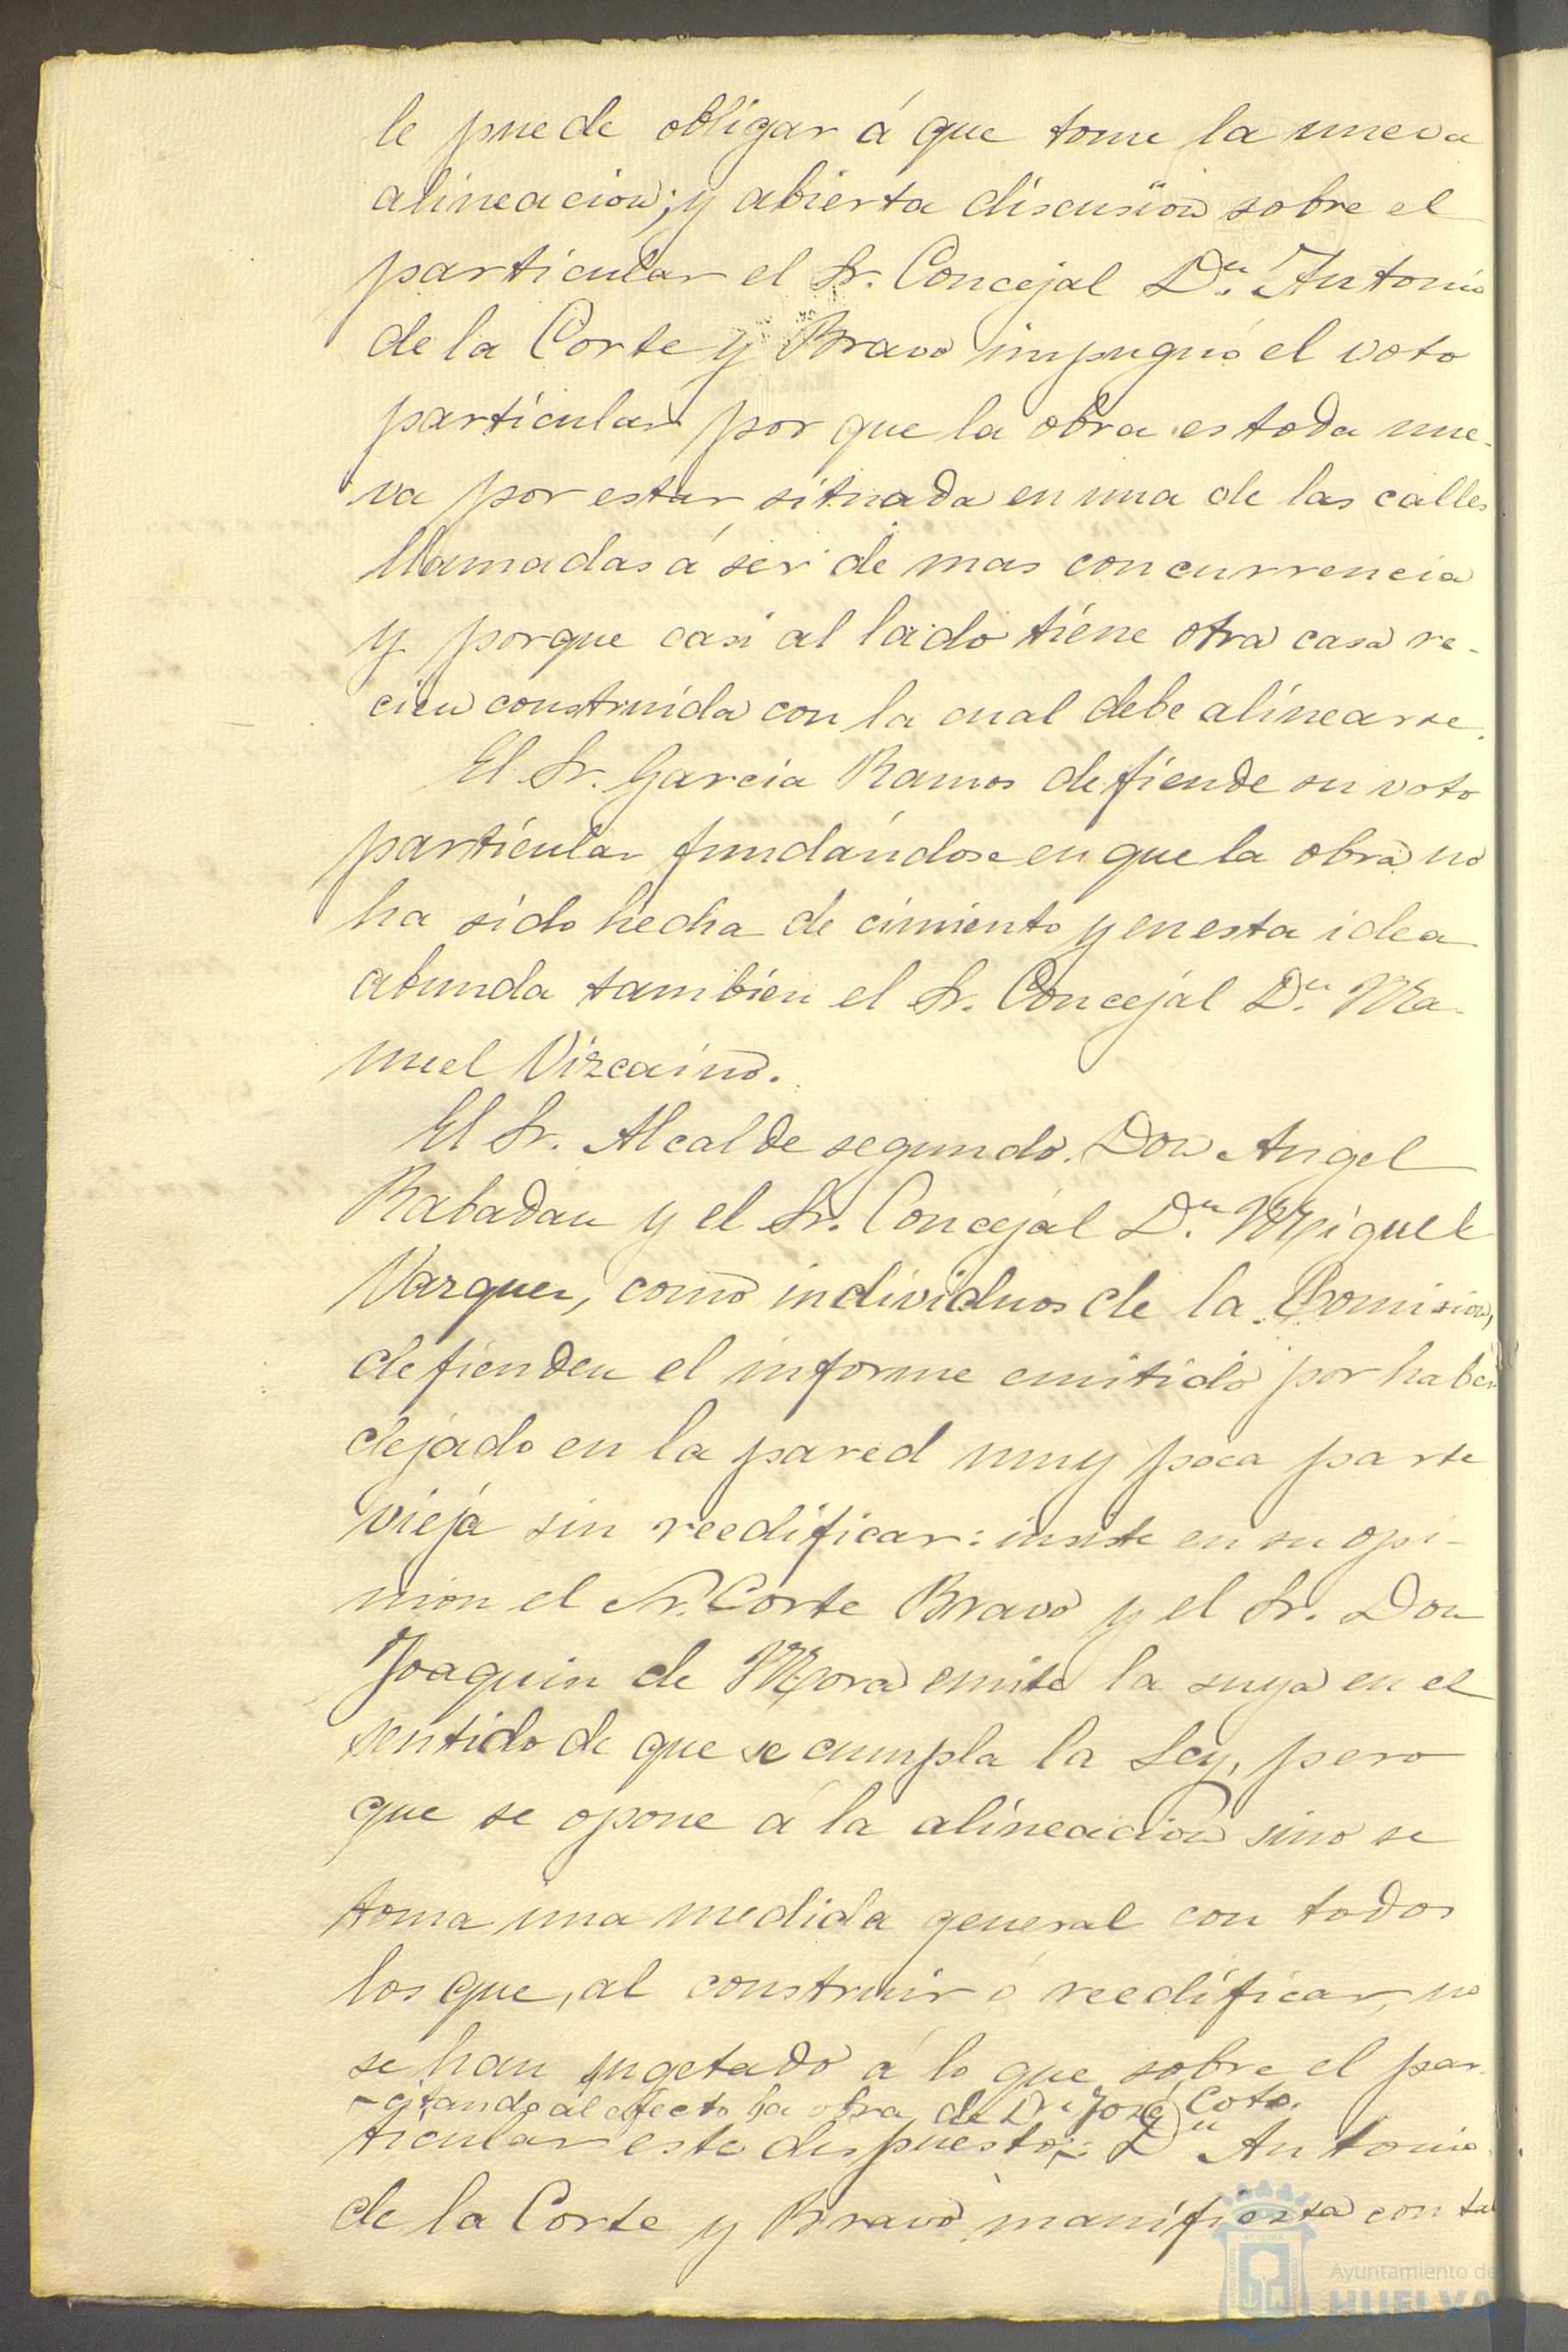 le puede obligar á que tome la nueva
alineacion; y abierta discusion sobre el
particular el Sr. Concejal Dn. Antonio
de la Corte y Bravo impugnó el voto
particular por que la obra es toda nue-
va por estar situada en una de las calles
llamadas á ser de mas concurrencia
y porque casi al lado tiene otra casa re-
cien construida con la cual debe alinearse.
El Sr. Garcia Ramos defiende su voto
particular fundándose en que la obra no
ha sido hecha de cimiento y en esta idea
abunda tambien el Sr. Concejal Dn. Ma-
nuel Vizcaino.
El Sr. Alcalde segundo Don Angel
Rabadan y el Sr. Concejal Dn. Miguel
Vazquez, como individuos de la Comision,
defienden el informe emitido por haber
dejado en la pared muy poca parte
vieja sin reedificar: insiste en su opi-
nion el Sr. Corte Bravo y el Sr. Don
Joaquin de Mora emite la suya en el
sentido de que se cumpla la Ley, pero
que se opone á la alineacion sino se
toma una medida general con todos
los que, al construir ó reedificar, no
se han sugetado á lo que sobre el par-
-citando al efecto la obra de Dn José Coto.
ticular este dispuesto: Dn Antonio
de la Corte y Bravo manifiesta con tal
Ayuntamiento de
HUELVA